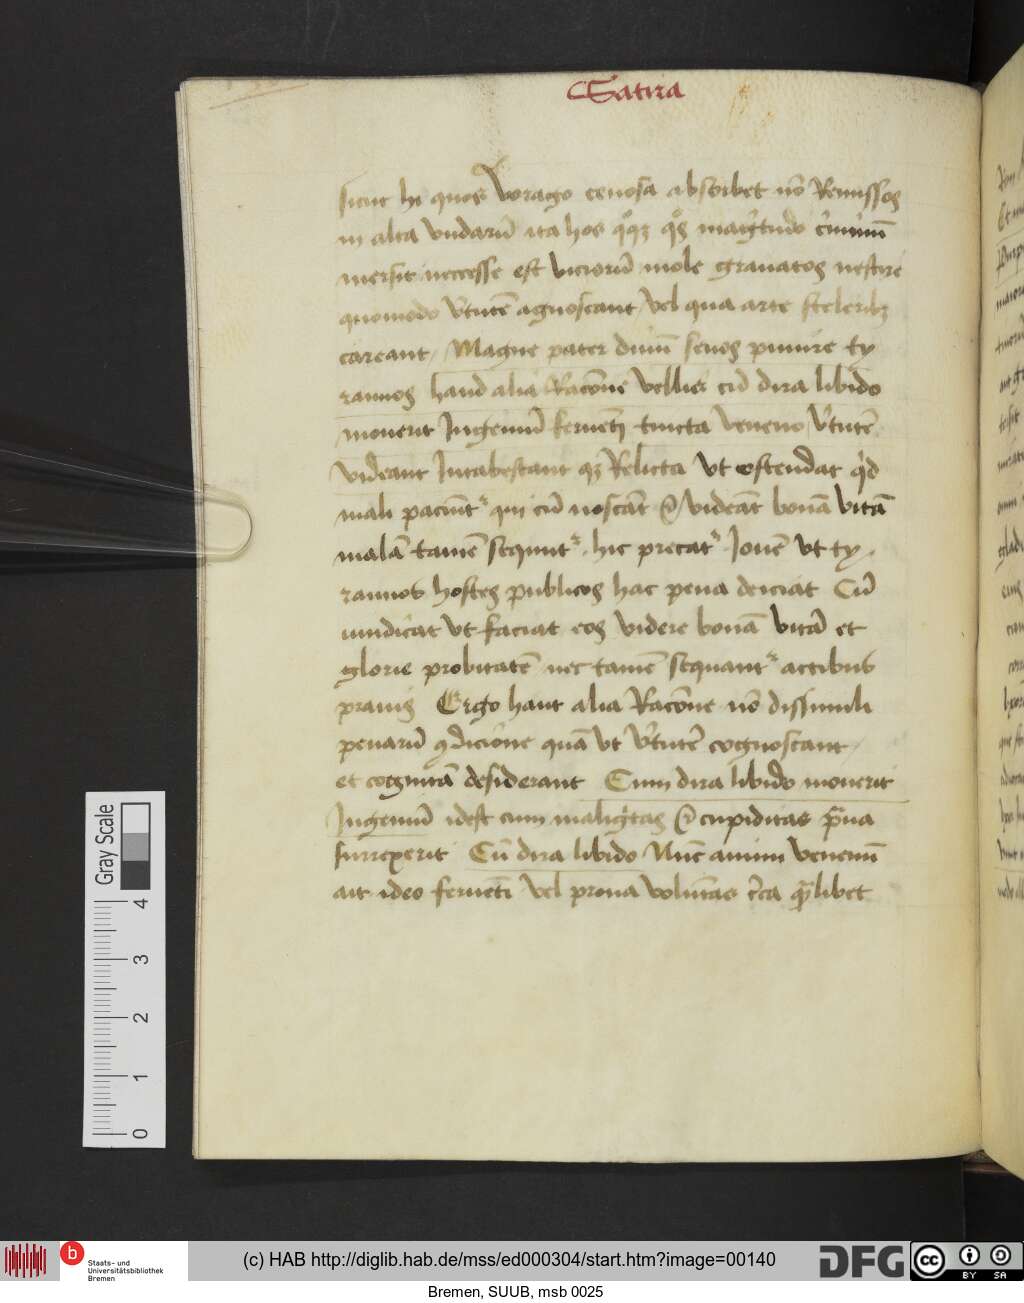 Satira
sicut hi quos vorago cenosa absorbet nō Remissos
in alta vndarū ita hos qͦqꝫ qͦs magͥtudo cͥminū
mersit neccesse est viciorū mole grauatos nescire
quomodo vͥtutē agnoscant vel qua arte sceleribꝫ
careant / Magne pater diuū seuos punire ty
rannos haud alia Racōne vellies cū dira libido
mouerit Ingeniū feruenti tincta veneno / vͥtutē
videant Intabescant qꝫ Relicta Vt ostendat qͥd
mali paciūt qui cū noscāt & videāt bonā vitā
malā tamē sequunt . hic precat Iouē vt ty
rannos hostes publicos hac pena deiciat Cū
iudicat vt faciat eos videre bonā vitā et
glorie probitatē nec tamē sequant actibus
prauis Ergo haut alia Racōne nō dissimili
penarū ꝯdicione quā vt vͥtutē cognoscant /
et cognitā desiderant Cum dira libido mouerit
Ingeniū idest cum maligͥtas & cupiditas
surrexerit Cū dira libido Nūc animi venenū
ait ideo feruēti vel prona volūtas cͥca libet
Gray Scale
4
3
2
1
0
b Staats- und
Universitätsbibliothek
Bremen
(c) HAB http://diglib.hab.de/mss/ed000304/start.htm?image=00140
DFG
cc BY SA
Bremen, SUUB, msb 0025